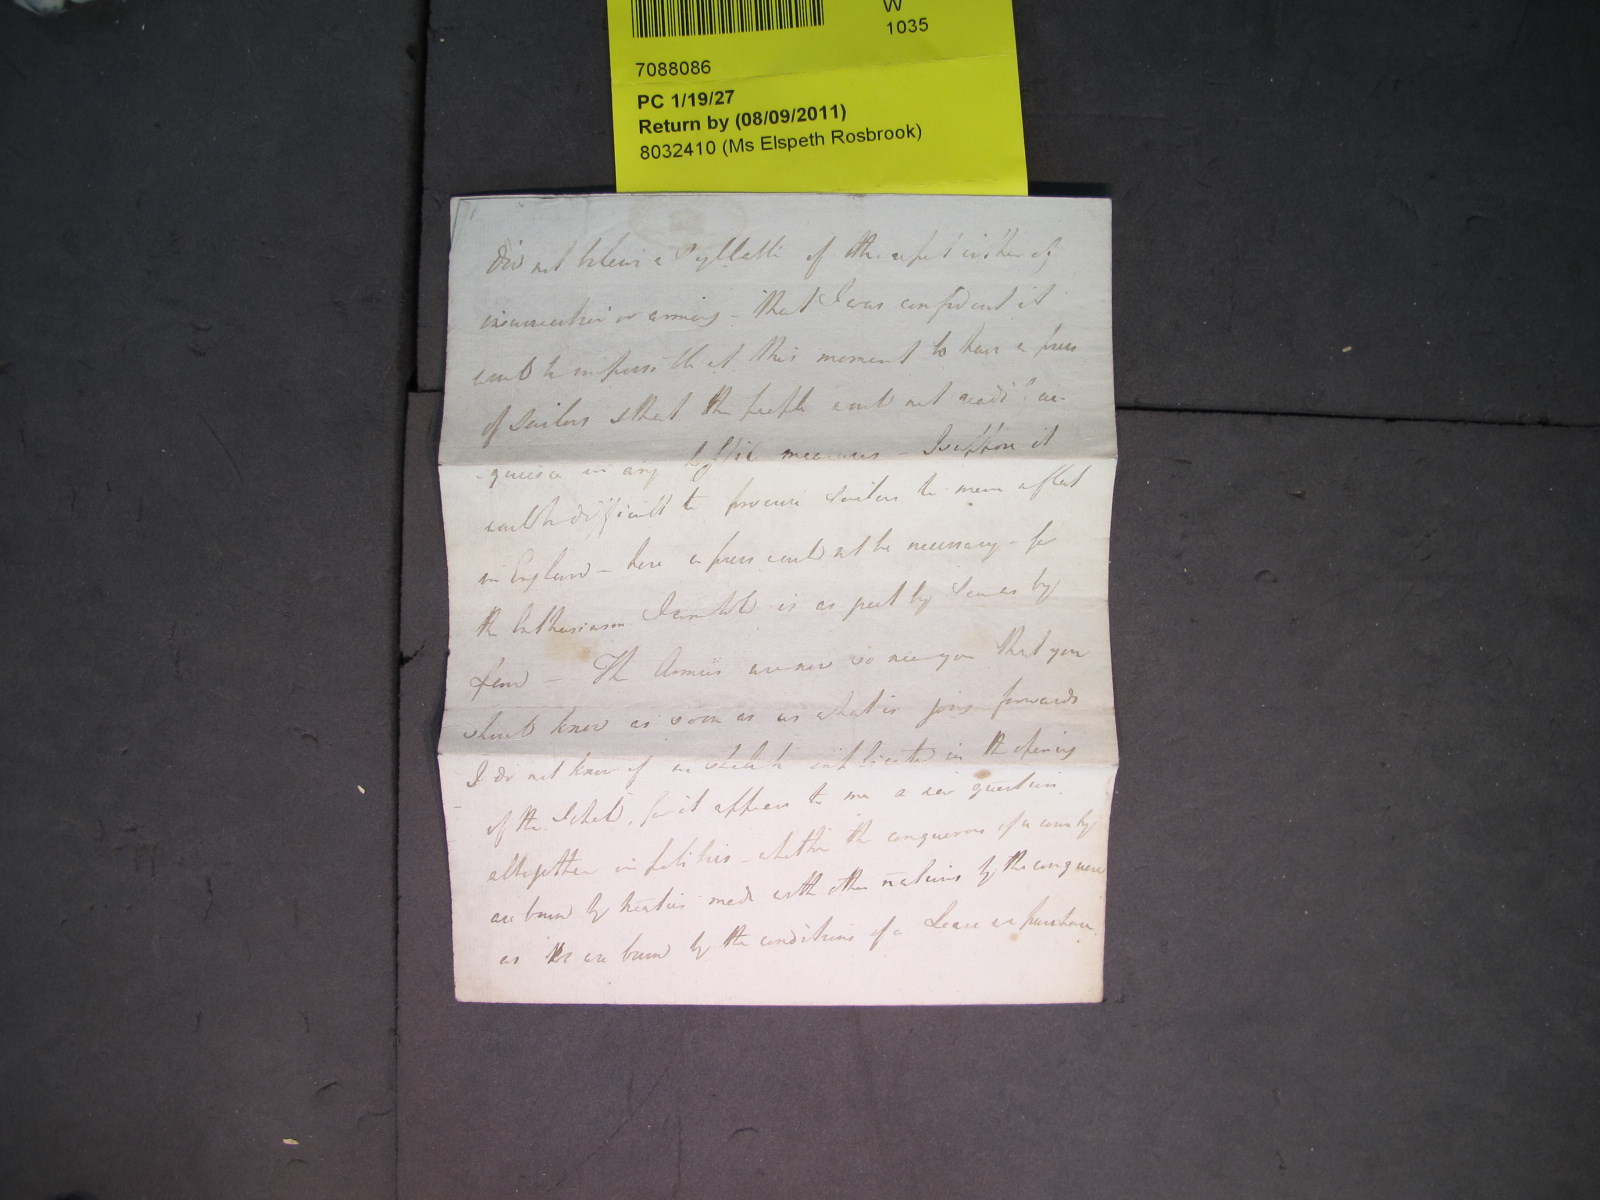 W
1035
7088086
PC 1/19/27
Return by (08/09/2011)
8032410 (Ms Elspeth Rosbrook)
did not believe a Syllable of the either of
insurrection or arming - that I was confident it
would be impossible at this moment to have a press
of Sailors & that the people would not ac-
-quiesce in any measures - I suppose it
would be difficult to procure Sailors to man a fleet
in England - here a press would not be necessary - for
the Enthusiasm I am told is as great by Sea as by
Land - The Armies are now so near you that you
should know as soon as us what is going forwards
I do not know if we should be in the opening
of the Scheld, for it appears to me a new question
altogether in politics - whether the conquerors of a country
are bound by treaties made with other nations by the conquered
as they are bound by the conditions of a Lease or purchase